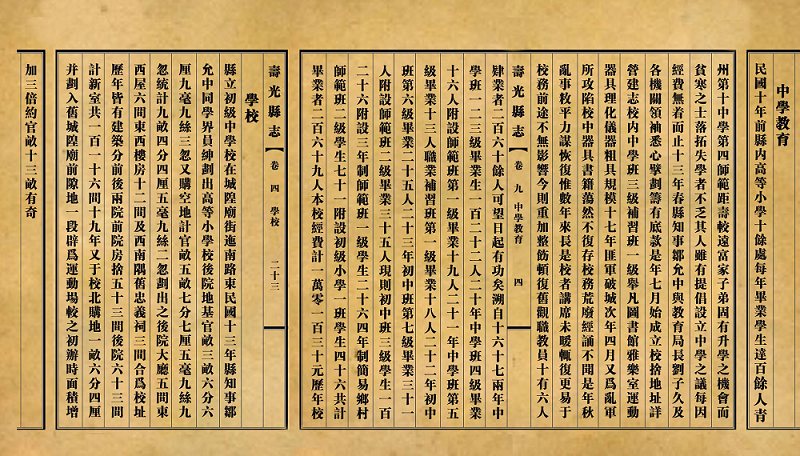 中學教育
民國十年前縣内高等小學十餘處每年畢業學生達百餘人青
州第十中學第四師範距壽較遠富家子弟固有升學之機會而
貧寒之士落拓失學者不乏其人雖有提倡設立中學之議每因
經費無着而止十三年春縣知事鄒允中與教育局長劉子久及
各機關領袖悉心擘劃籌有底款是年七月始成立校捨地址詳
營建志校内中學班三級補習班一級舉凡圖書館雅樂室運動
器具理化儀器粗具規模十七年匪軍破城次年四月又爲亂軍
所攻陷校中器具書籍蕩然不復存校務荒廢經誦不聞是年秋
亂事敉平力謀恢復惟數年來長是校者講席未暖輒復更易于
校務前途不無影響今則重加整飭頓復舊觀職教員十有六人
壽光縣志 卷九 中學教育 四
肄業者二百六十餘人可望日起有功矣溯自十六十七兩年中
學班一二三級畢業生一百二十二人二十年中學班四級畢業
十六人附設師範班第一級畢業十九人二十一年中學班第五
級畢業十三人職業補習班第一級畢業十八人二十二年初中
班第六級畢業二十五人二十三年初中班第七級畢業三十一
人附設師範班二級畢業三十五人現則初中班三級學生一百
二十六附設三年制師範班一級學生二十六四年制簡易鄉村
師範班二級學生七十一附設初級小學一班學生四十六共計
畢業者二百六十九人本校經費計一萬零一百三十元歷年校
壽光縣志 卷四 學校 二十三
學校
縣立初級中學校在城隍廟街迤南路東民國十三年縣知事鄒
允中同學界員紳劃出高等小學校後院地基官畝三畝六分六
厘九毫九絲三忽又購空地計官畝五畝七分七厘五毫九絲九
忽統計九畝四分四厘五毫九絲二忽劃出之後院大廳五間東
西屋六間東西樓房十二間及西南隅舊忠義祠三間合爲校址
歷年皆有建築分前後兩院前院房捨五十三間後院六十三間
計新室共一百一十六間十九年又于校北購地一畝六分四厘
并劃入舊城隍廟前隙地一段辟爲運動場較之初辦時面積增
加三倍約官畝十三畝有奇